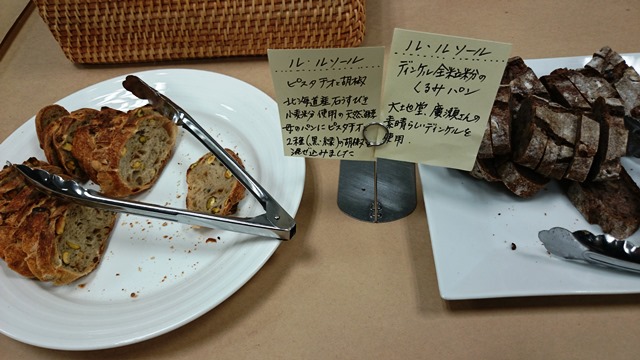 ル・ルソール
ピスタチオと胡椒
北海道産石うすびき
小麦粉使用の天然酵
母のパンにピスタチオ
2種(黒・緑)の胡椒
混ぜ込みました
ル・ルソール
ディンケル全粒粉の
くるみパン
大地堂、廣瀬さんの
素晴らしいディンケルを
使用